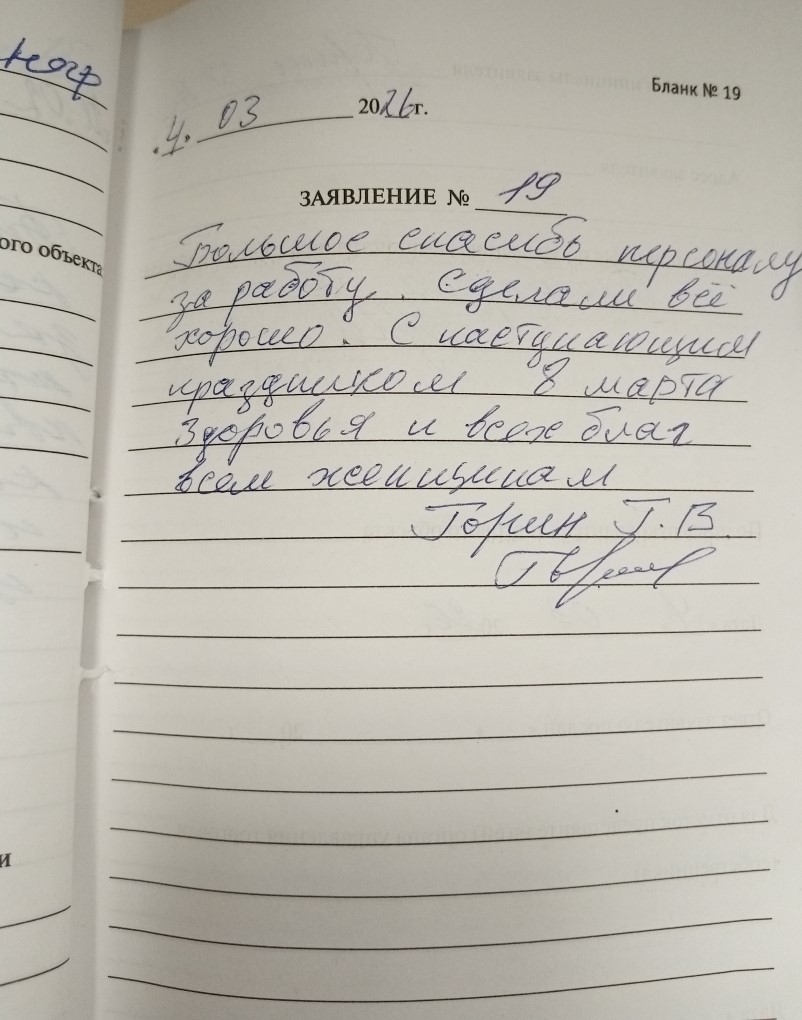 нагр
ого объекта
и
Бланк № 19
«4» 03 2026г.
ЗАЯВЛЕНИЕ № 19
Большое спасибо персоналу
за работу. Сделали всё
хорошо. С наступающим
праздником 8 марта
Здоровья и всех благ
всем женщинам
Горин Г.В.